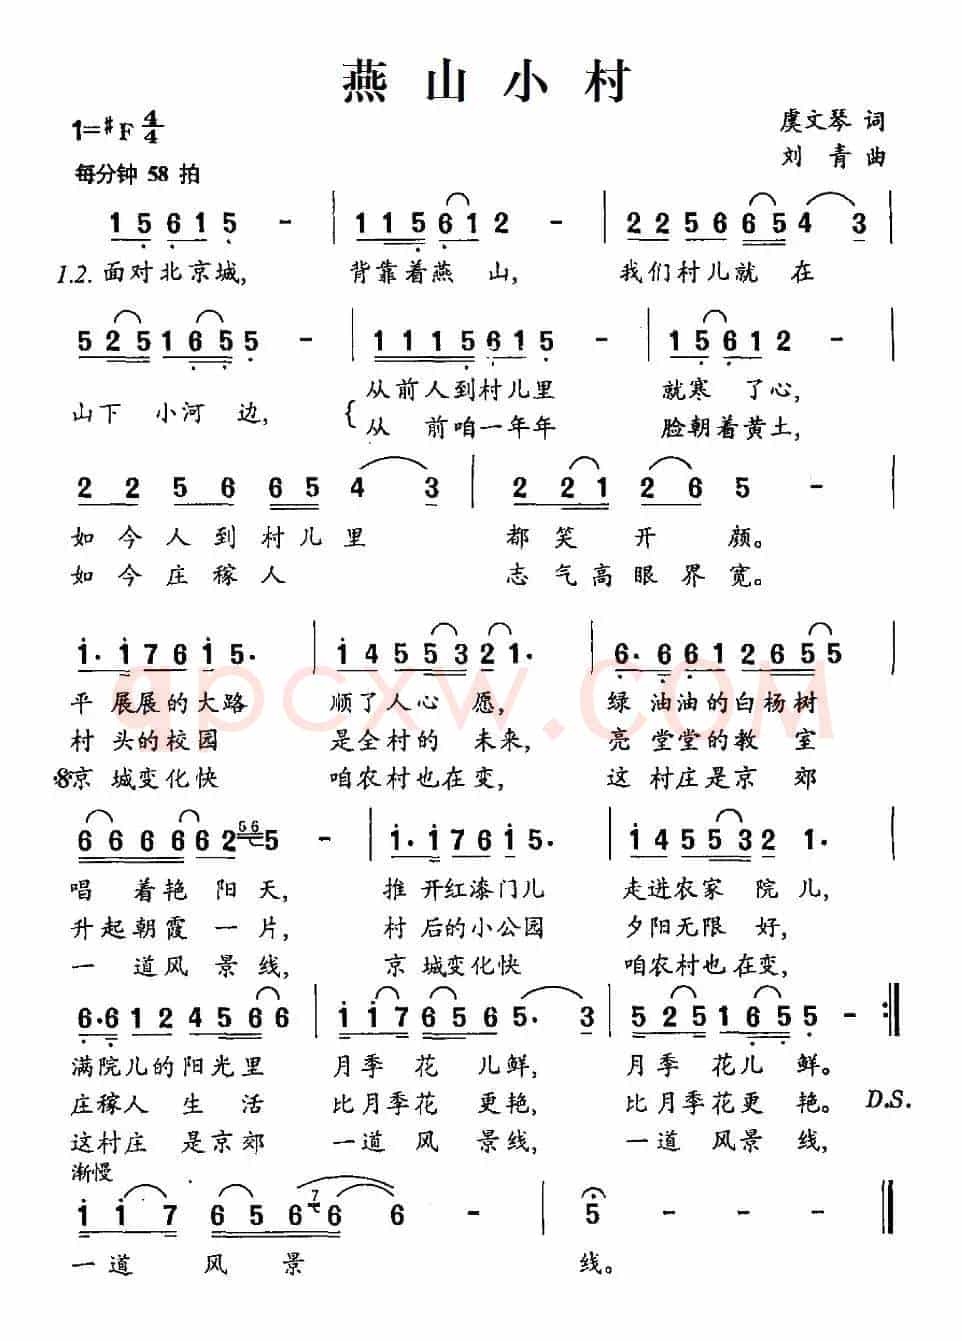 燕山小村
1=♯F 4/4
虞文琴 词
每分钟 58 拍
刘 青 曲
1 5 6 1 5 - | 1 1 5 6 1 2 - | 2 2 5 6 6 5 4 3 |
1.2. 面对北京城, 背靠着燕 山, 我们村儿就 在
5 2 5 1 6 5 5 - | 1 1 1 5 6 1 5 - | 1 5 6 1 2 - |
从前人到村儿里 就寒 了心,
山下 小河 边,
从 前咱一年年 脸朝着黄土,
2 2 5 6 6 5 4 3 | 2 2 1 2 6 5 - |
如今人到村儿里 都笑开颜。
如今庄稼人 志气高眼界宽。
1· 1 7 6 1 5· | 1 4 5 5 3 2 1· | 6· 6 6 1 2 6 5 5
平 展展的大路 顺了人心 愿, 绿 油油的白杨树
村 头的校园 是全村的 未来, 亮 堂堂的教 室
京 城变化快 咱农村也在变, 这 村庄是京 郊
qpcxw.com
6 6 6 6 6 6 2 56 5 - | 1· 1 7 6 1 5· | 1 4 5 5 3 2 1· |
唱 着艳 阳天, 推 开红漆门儿 走进农家 院儿,
升起朝霞 一 片, 村 后的小公园 夕阳无限 好,
一 道风 景线, 京 城变化快 咱农村也在变,
6· 6 1 2 4 5 6 6 | 1 1 7 6 5 6 5· 3 | 5 2 5 1 6 5 5 - :‖
满院儿的阳光里 月季 花 儿鲜, 月季 花儿 鲜。
庄稼人 生 活 比月季花 更艳, 比月季花更 艳。 D.S.
这村庄 是京郊 一道 风 景线, 一道 风景线,
渐慢
1 1 7 6 5 6 7 6 6 - | 5 - - - ‖
一道 风 景 线。